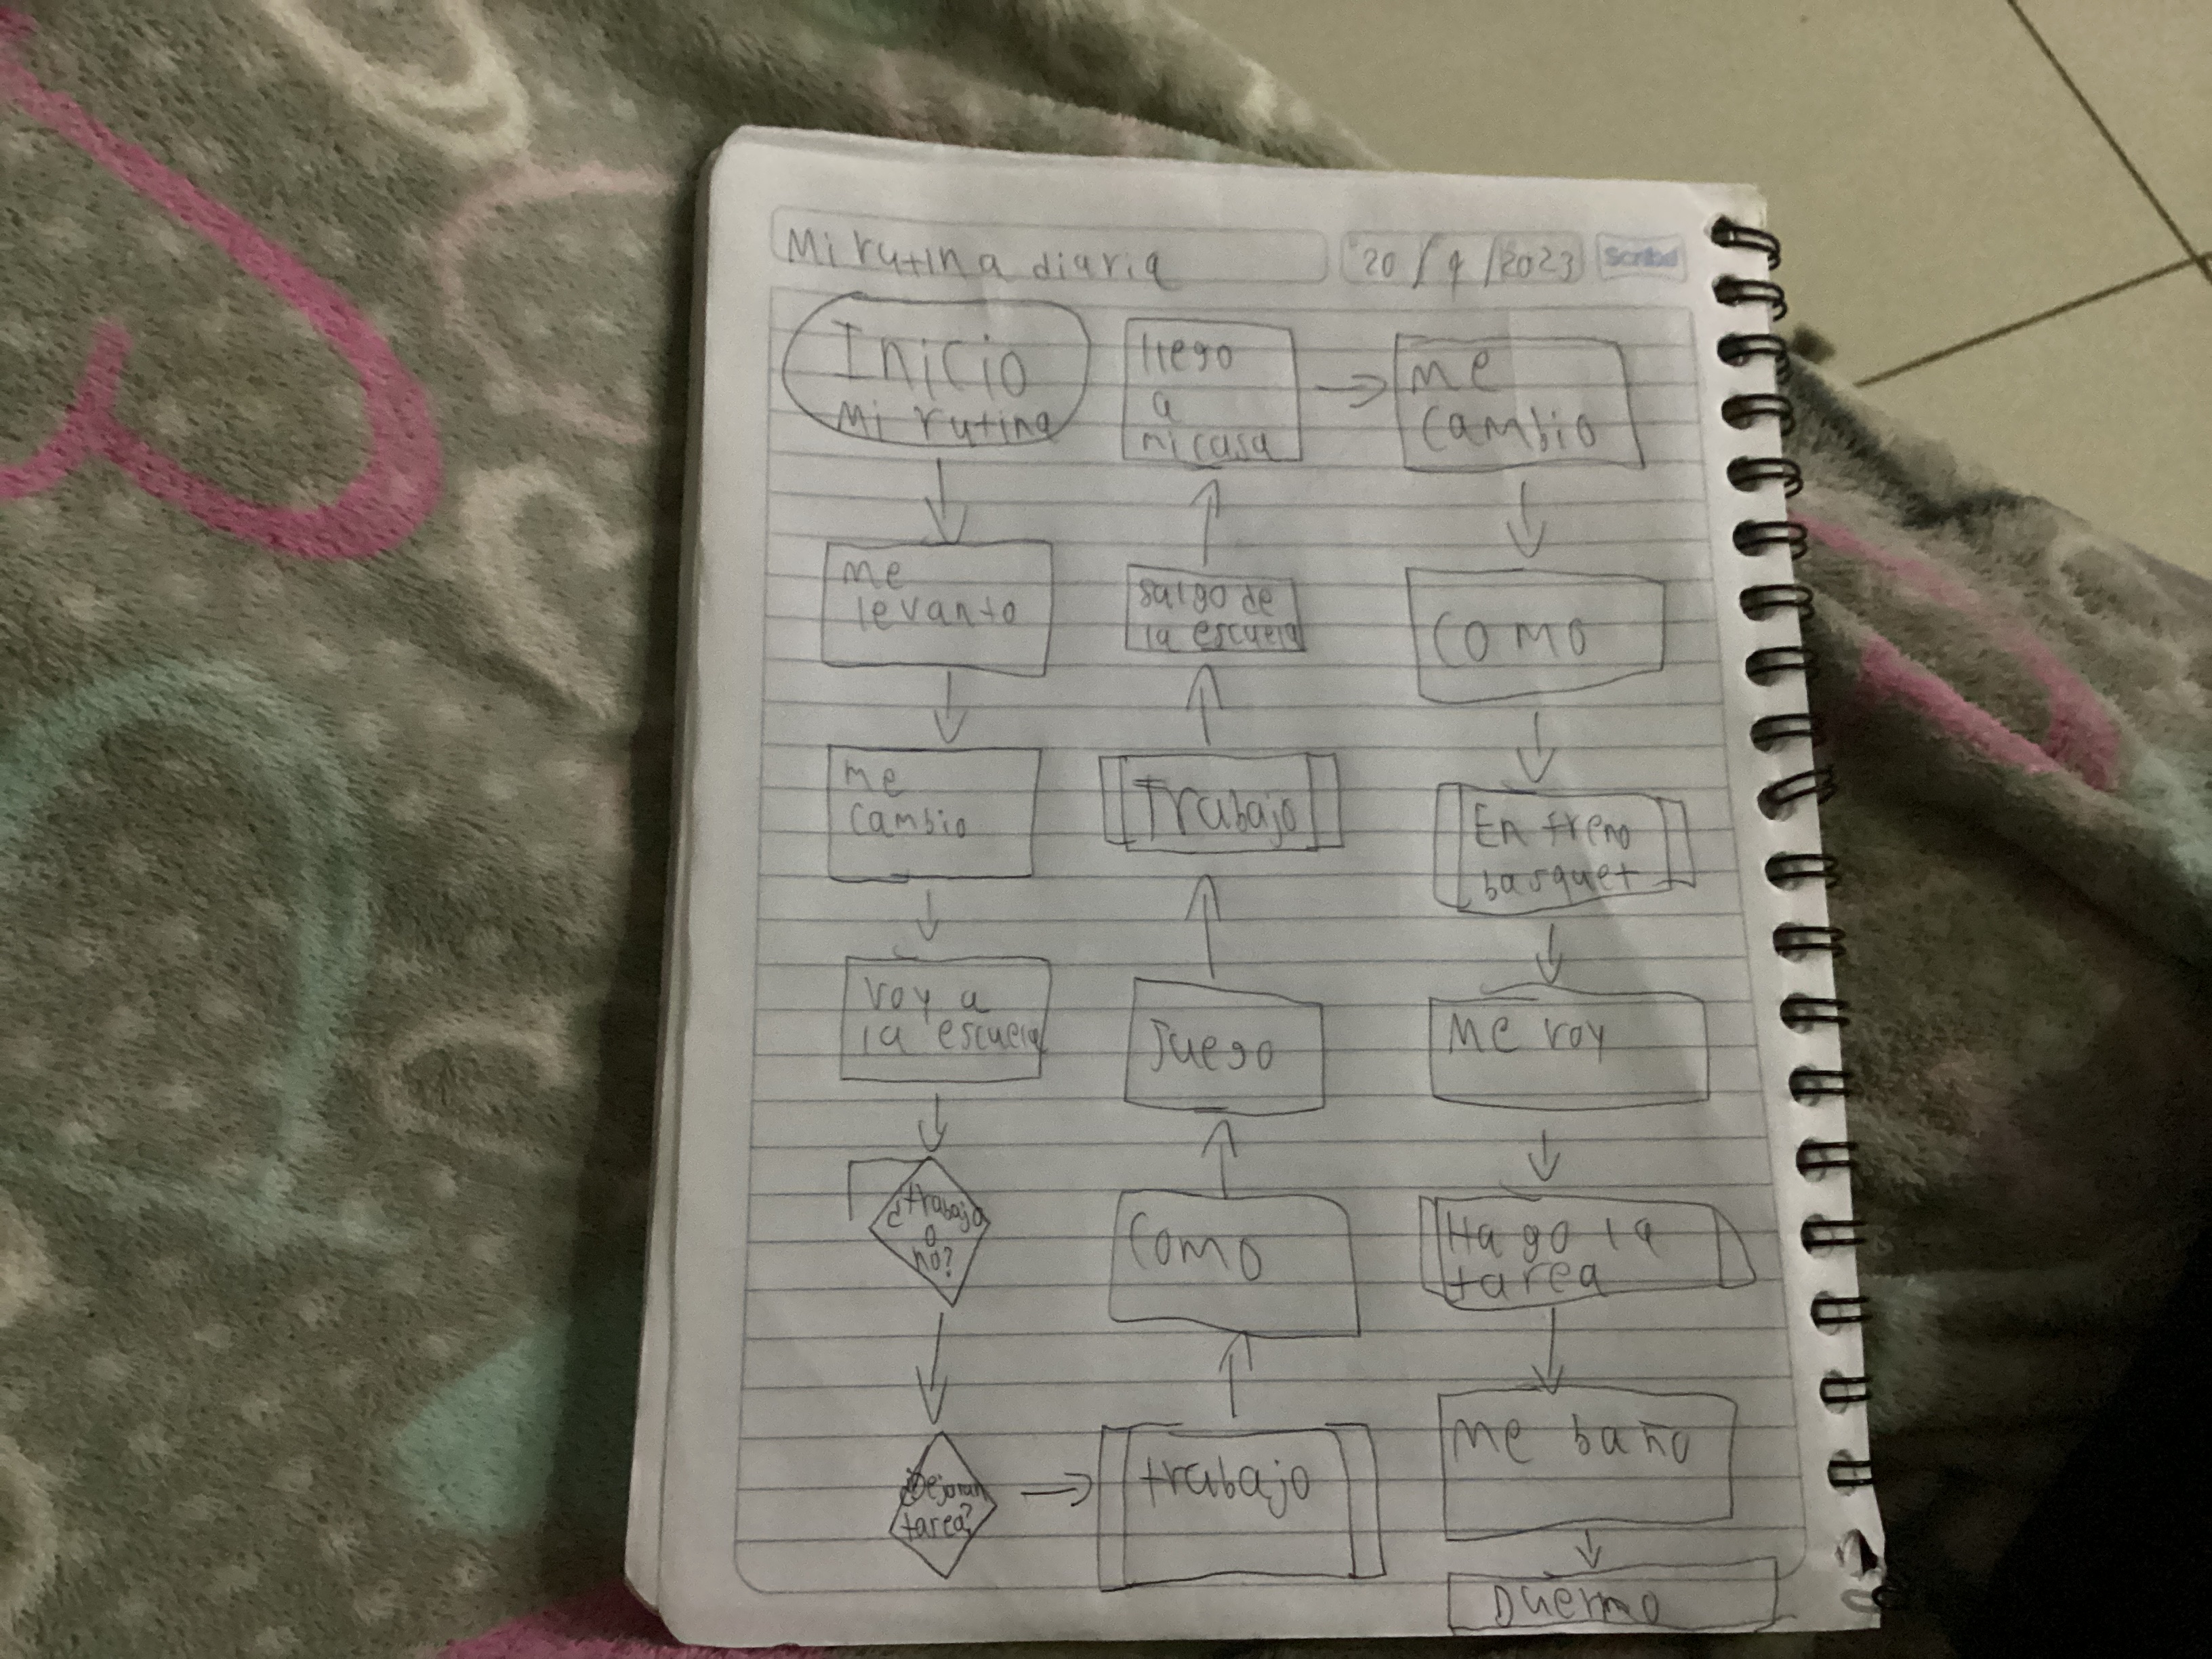 Mi rutina diaria
20/9/2023
Scribe
Inicio
Mi rutina
me
levanto
me
cambio
voy a
la escuela
¿trabajo
o
no?
¿Dejaran
tarea?
trabajo
Como
Juego
Trabajo
salgo de
la escuela
llego
a
mi casa
me
cambio
Como
Entreno
basquet
Me voy
Hago la
tarea
Me baño
Duermo